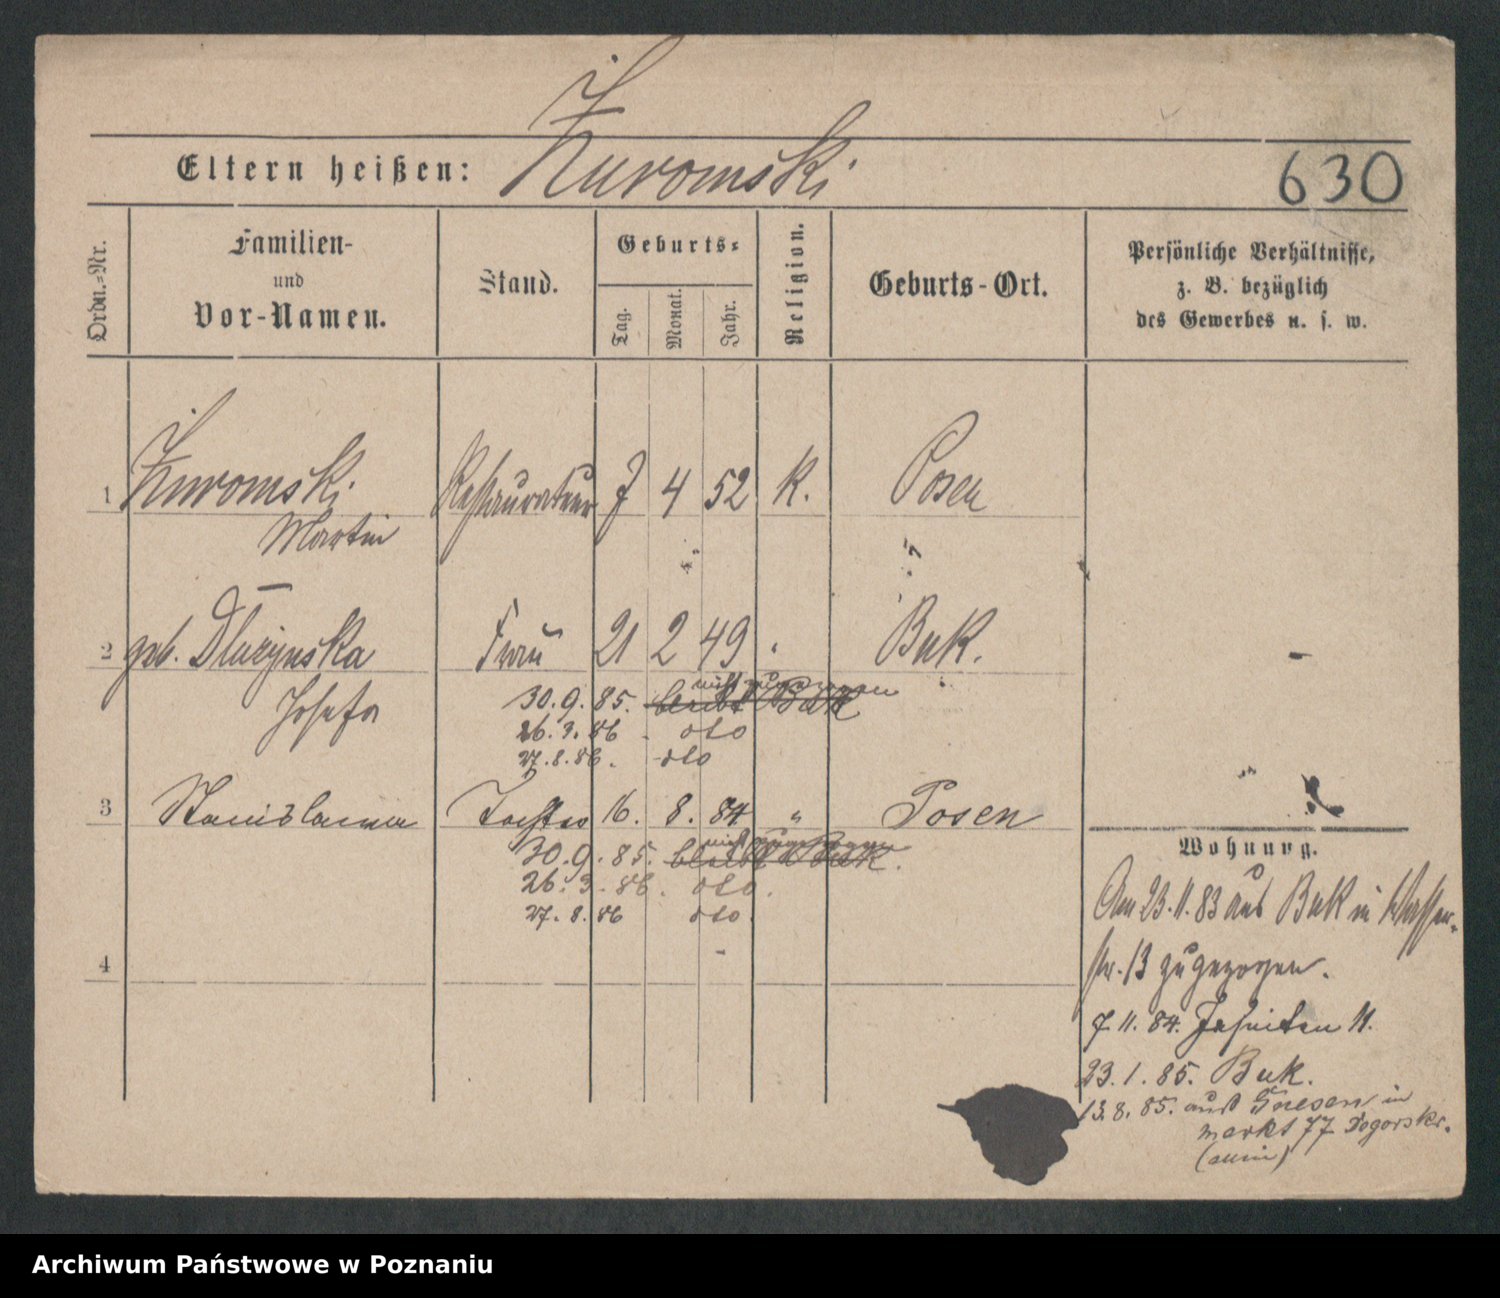 Żuromski
Eltern heißen:
630
Ordn.-Nr.
Familien-
und
Vor-Namen.
Stand.
Geburts-
Tag.
Monat.
Jahr.
Religion.
Geburts-Ort.
Persönliche Verhältnisse,
z. B. bezüglich
des Gewerbes u. s. w.
1 Żuromski Restaurateur 7 4 52 K. Posen
Martin
2 geb. Dłużynska Frau 21 2 49 " Buk.
Josefa
30.9.85. bleibt Buk nicht zugezogen
26.3.86. dto
27.8.86. dto
3 Stanislawa Tochter 16. 8. 84 " Posen
30.9.85. bleibt Buk. nicht zugezogen
26.3.86. dto.
27.8.86 dto
4
Wohnung.
Am 23.11.83 aus Buk in Wasser-
str. 13 zugezogen.
7.11.84. Jesuiten 11.
23.1.85. Buk.
13.8.85. aus Gnesen in
Markt 77
Archiwum Państwowe w Poznaniu